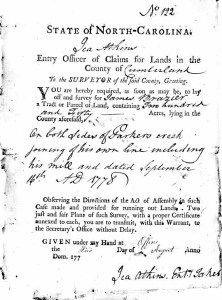 No 192
STATE OF NORTH-CAROLINA.
Ica Atkins
Entry Officer of Claims for Lands in the
County of Cumberland
To the SURVEYOR of the said County, Greeting.
YOU are hereby required, as soon as may be, to lay
off and survey for James Brazier
a Tract or Parcel of Land, containing Two hundred
and Fifty Acres, lying in the
County aforesaid,
On both sides of Parkers creek
joining of his own line including
his mill and dated September
16th AD 1778
Observing the Directions of the Act of Assembly in such
Case made and provided for running out Lands. Two
just and fair Plans of such Survey, with a proper Certificate
annexed to each, you are to transmit, with this Warrant, to
the Secretary's Office without Delay.
GIVEN under my Hand at Office
the Day of August Anno
Dom. 177
Ica Atkins. Ent Taker